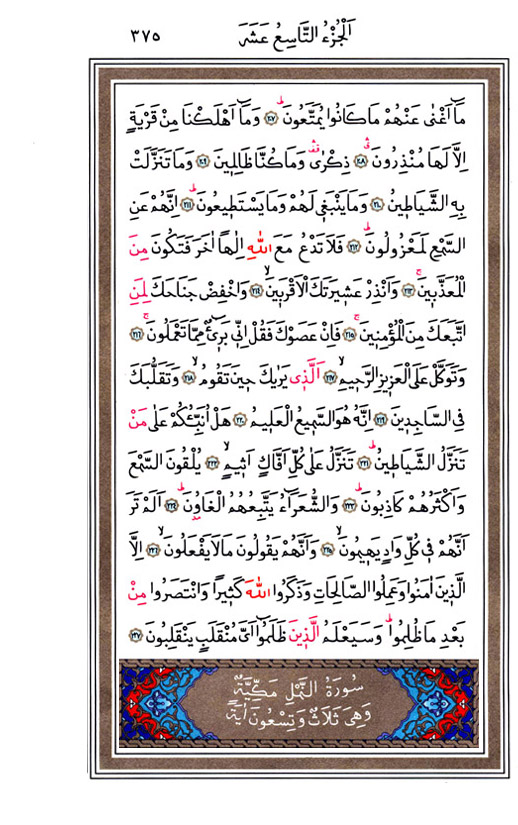 اَلْجُزْءُ التَّاسِعُ عَشَرَ ٣٧٥
مَٓا اَغْنٰى عَنْهُمْ مَا كَانُوا يُمَتَّعُونَۜ ﴿٢٠٧﴾ وَمَٓا اَهْلَكْنَا مِنْ قَرْيَةٍ
اِلَّا لَهَا مُنْذِرُونَۗ ﴿٢٠٨﴾ ذِكْرٰىۛ وَمَا كُنَّا ظَالِم۪ينَ ﴿٢٠٩﴾ وَمَا تَنَزَّلَتْ
بِهِ الشَّيَاط۪ينُ ﴿٢١٠﴾ وَمَا يَنْبَغ۪ي لَهُمْ وَمَا يَسْتَط۪يعُونَۜ ﴿٢١١﴾ اِنَّهُمْ عَنِ
السَّمْعِ لَمَعْزُولُونَۜ ﴿٢١٢﴾ فَلَا تَدْعُ مَعَ اللّٰهِ اِلٰهًا اٰخَرَ فَتَكُونَ مِنَ
الْمُعَذَّب۪ينَۚ ﴿٢١٣﴾ وَاَنْذِرْ عَش۪يرَتَكَ الْاَقْرَب۪ينَۙ ﴿٢١٤﴾ وَاخْفِضْ جَنَاحَكَ لِمَنِ
اتَّبَعَكَ مِنَ الْمُؤْمِن۪ينَۚ ﴿٢١٥﴾ فَاِنْ عَصَوْكَ فَقُلْ اِنّ۪ي بَر۪ٓيءٌ مِمَّا تَعْمَلُونَۚ ﴿٢١٦﴾
وَتَوَكَّلْ عَلَى الْعَز۪يزِ الرَّح۪يمِۙ ﴿٢١٧﴾ اَلَّذ۪ي يَرٰيكَ ح۪ينَ تَقُومُۙ ﴿٢١٨﴾ وَتَقَلُّبَكَ
فِي السَّاجِد۪ينَ ﴿٢١٩﴾ اِنَّهُ هُوَ السَّم۪يعُ الْعَل۪يمُ ﴿٢٢٠﴾ هَلْ اُنَبِّئُكُمْ عَلٰى مَنْ
تَنَزَّلُ الشَّيَاط۪ينُۜ ﴿٢٢١﴾ تَنَزَّلُ عَلٰى كُلِّ اَفَّاكٍ اَث۪يمٍۙ ﴿٢٢٢﴾ يُلْقُونَ السَّمْعَ
وَاَكْثَرُهُمْ كَاذِبُونَۜ ﴿٢٢٣﴾ وَالشُّعَرَٓاءُ يَتَّبِعُهُمُ الْغَاوُ۫نَۜ ﴿٢٢٤﴾ اَلَمْ تَرَ
اَنَّهُمْ ف۪ي كُلِّ وَادٍ يَه۪يمُونَۙ ﴿٢٢٥﴾ وَاَنَّهُمْ يَقُولُونَ مَا لَا يَفْعَلُونَۙ ﴿٢٢٦﴾ اِلَّا
الَّذ۪ينَ اٰمَنُوا وَعَمِلُوا الصَّالِحَاتِ وَذَكَرُوا اللّٰهَ كَث۪يرًا وَانْتَصَرُوا مِنْ
بَعْدِ مَا ظُلِمُواۜ وَسَيَعْلَمُ الَّذ۪ينَ ظَلَمُٓوا اَيَّ مُنْقَلَبٍ يَنْقَلِبُونَ ﴿٢٢٧﴾
سُورَةُ النَّمْلِ مَكِّيَّةٌ
وَهِيَ ثَلَاثٌ وَتِسْعُونَ اٰيَةً